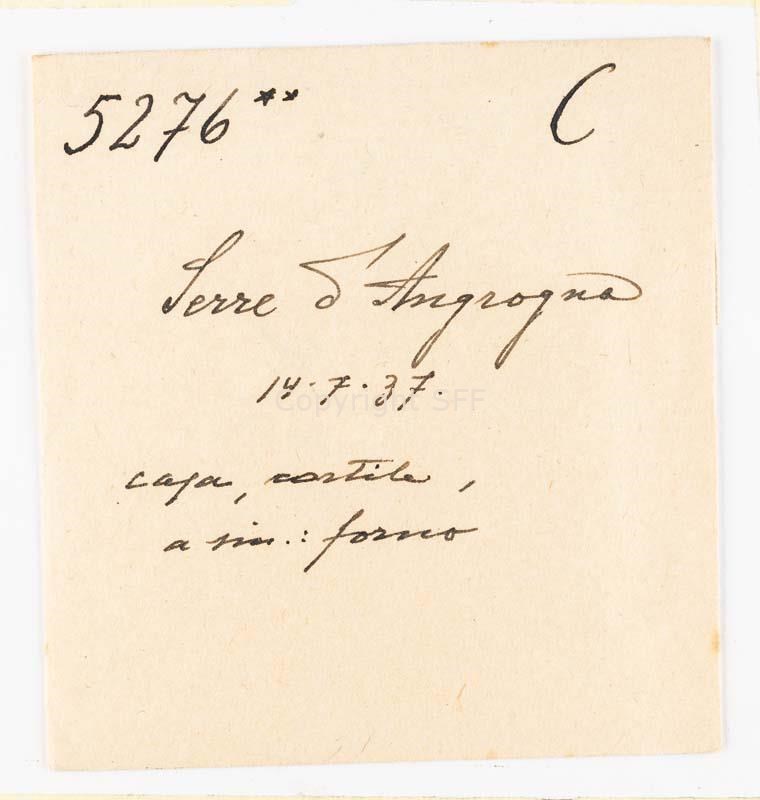 5276** C
Serre d'Angrogna
14.7.37.
casa, cortile,
a sin.: forno
Copyright SFF